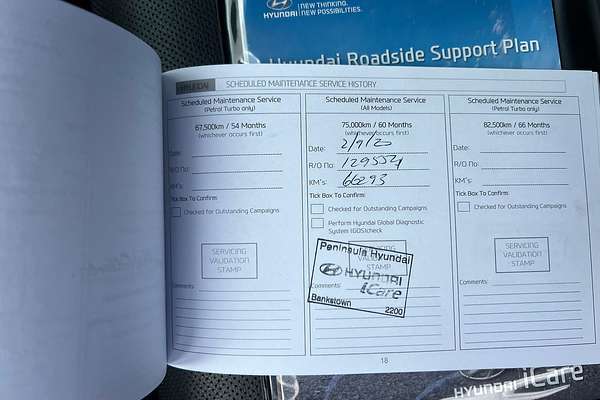 HYUNDAI
NEW THINKING.
NEW POSSIBILITIES.
Hyundai Roadside Support Plan
HYUNDAI
SCHEDULED MAINTENANCE SERVICE HISTORY
Scheduled Maintenance Service
(Petrol Turbo only)
67,500km / 54 Months
(whichever occurs first)
Date:
R/O No:
KM's:
Tick Box To Confirm:
Checked for Outstanding Campaigns
SERVICING
VALIDATION
STAMP
Comments:
Scheduled Maintenance Service
(All Models)
75,000km / 60 Months
(whichever occurs first)
Date: 2/9/20
R/O No:
KM's: 66293
Tick Box To Confirm:
Checked for Outstanding Campaigns
Perform Hyundai Global Diagnostic
System (GDS)check
Peninsula Hyundai
STAMP
HYUNDAI
iCare
Bankstown 2200
Comments:
Scheduled Maintenance Service
(Petrol Turbo only)
82,500km / 66 Months
(whichever occurs first)
Date:
R/O No:
KM's:
Tick Box To Confirm:
Checked for Outstanding Campaigns
SERVICING
VALIDATION
STAMP
Comments:
18
HYUNDAI iCare